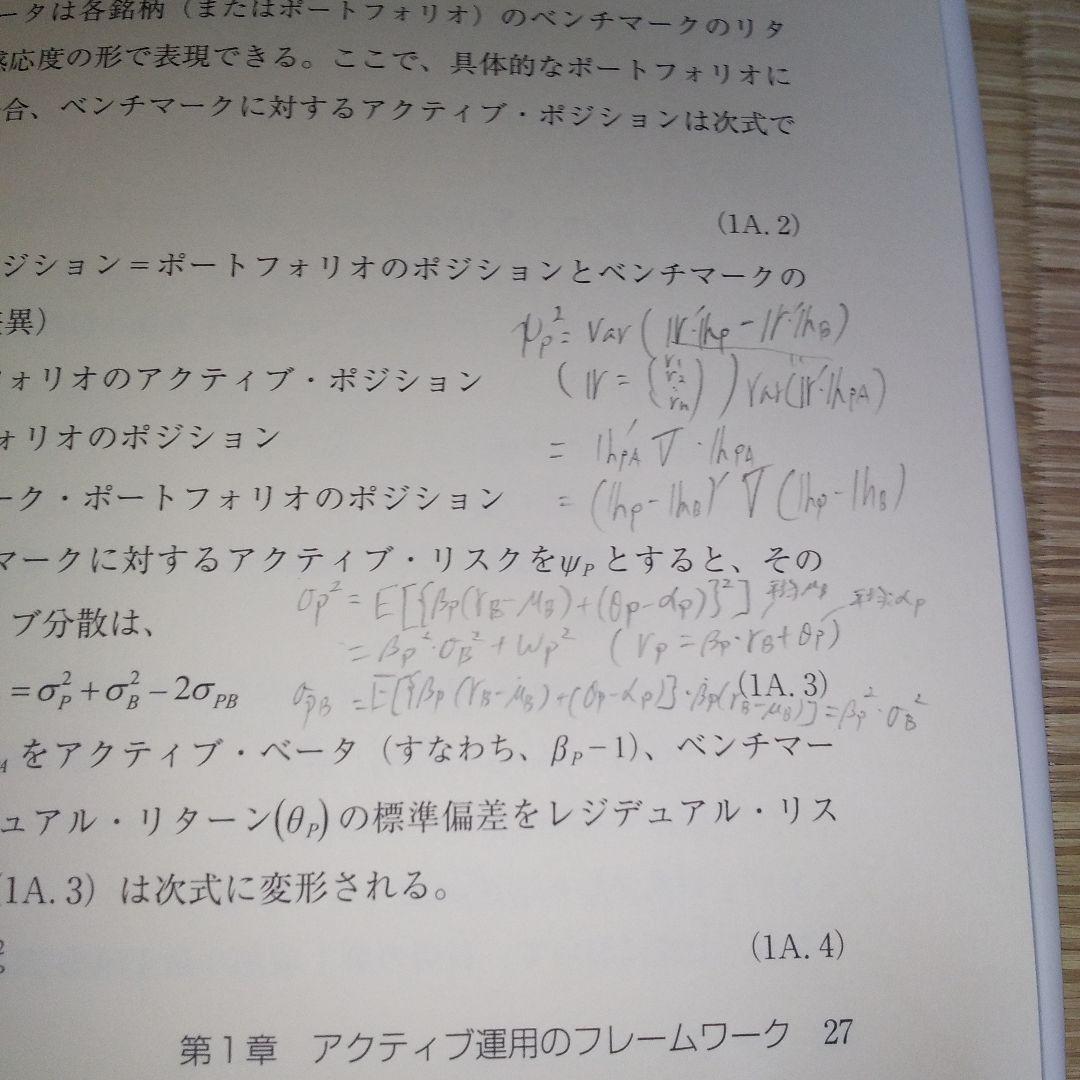 ータは各銘柄（またはポートフォリオ）のベンチマークのリタ
感応度の形で表現できる。ここで、具体的なポートフォリオに
合、ベンチマークに対するアクティブ・ポジションは次式で
(1A. 2)
ジション＝ポートフォリオのポジションとベンチマークの
差異）
ψp² = Var(𝕣'·𝕙p − 𝕣'·𝕙B)
フォリオのアクティブ・ポジション
(𝕣 = (r₁ r₂ ⋮ rn)) Var(𝕣'·𝕙PA)
ォリオのポジション
= 𝕙'PA V · 𝕙PA
ーク・ポートフォリオのポジション
= (𝕙p − 𝕙B)' V (𝕙p − 𝕙B)
マークに対するアクティブ・リスクをψPとすると、その
σp² = E[{βp(rB − μB) + (θp − αp)}²] 平均:μB 平均:αp
ブ分散は、
= βp²·σB² + ωp² (rp = βp·rB + θp)
= σ²P + σ²B − 2σPB
(1A. 3)
σPB = E[{βp(rB − μB) + (θp − αp)}·βp(rB − μB)] = βp²·σB²
A をアクティブ・ベータ（すなわち、βP−1）、ベンチマー
ュアル・リターン(θP)の標準偏差をレジデュアル・リス
(1A. 3) は次式に変形される。
(1A. 4)
第1章　アクティブ運用のフレームワーク　27